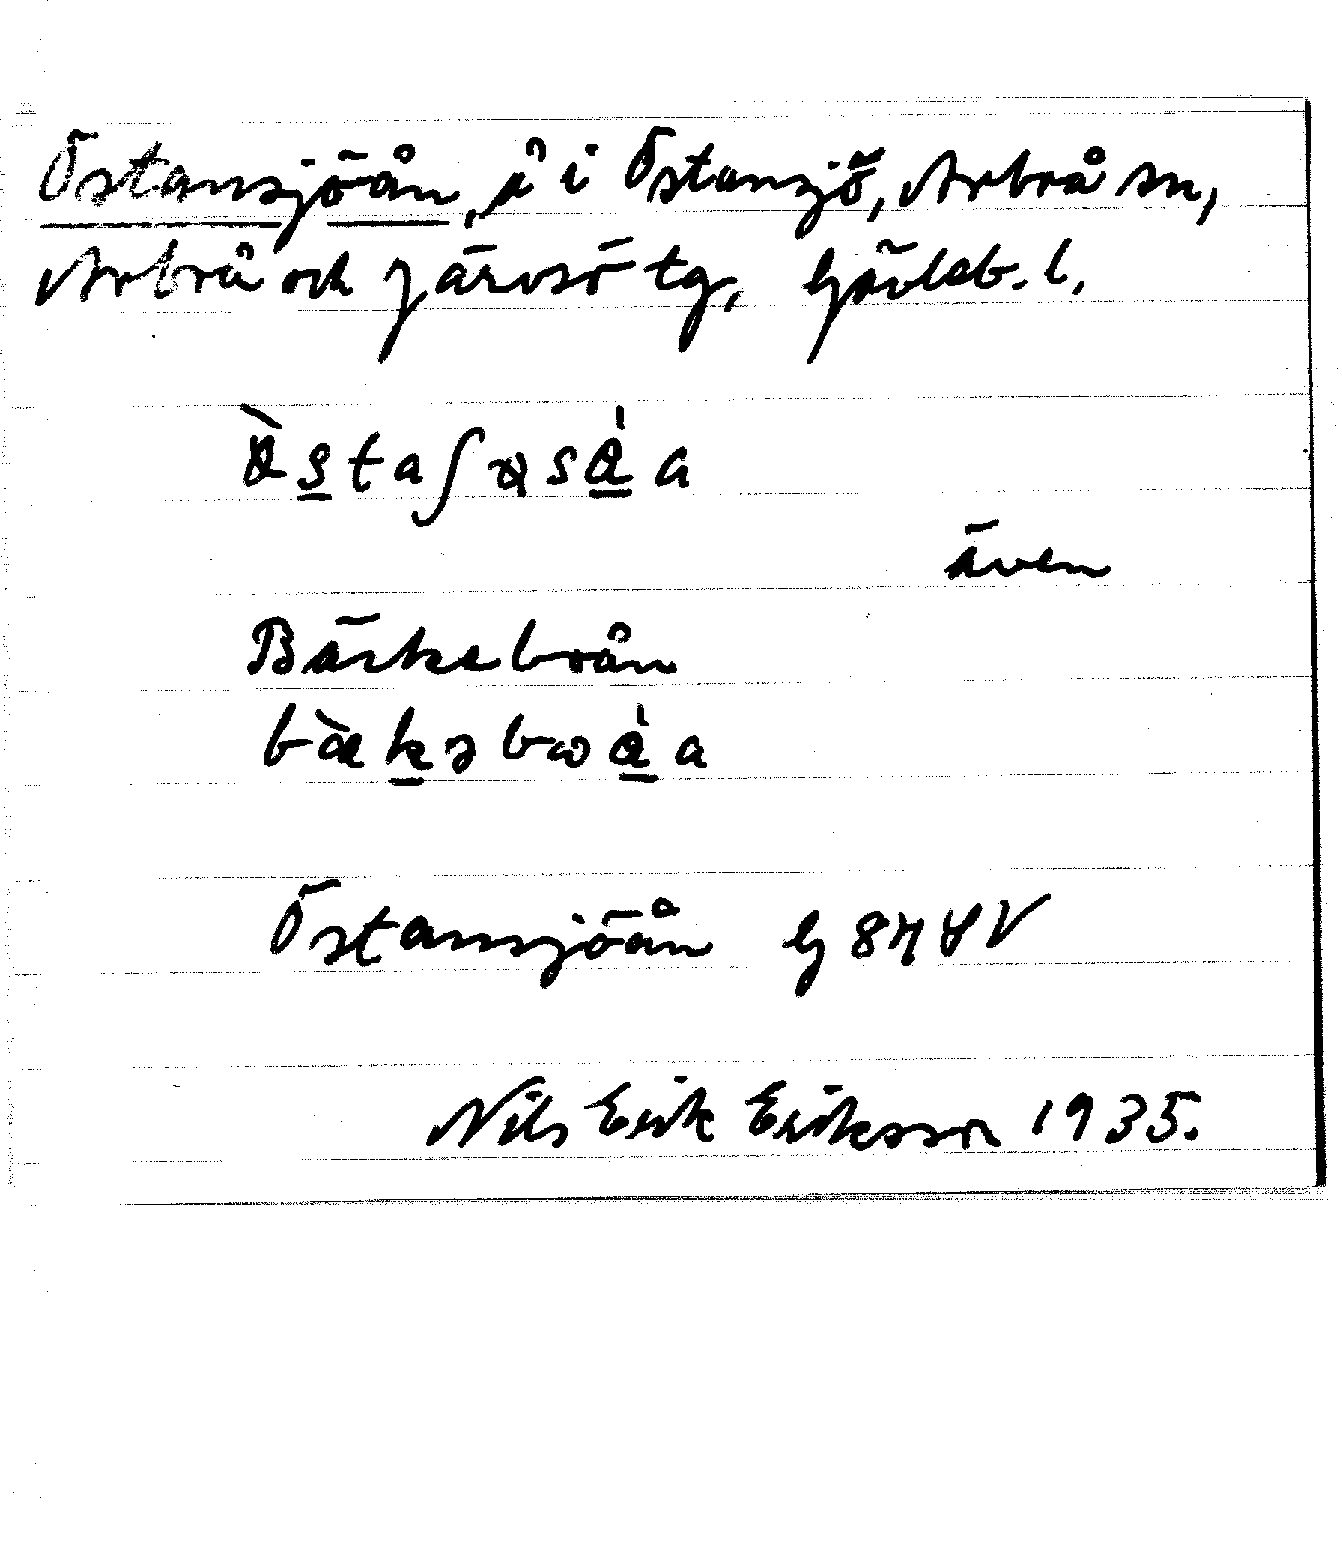 Östansjöån, å i Östansjö, Arbrå sn,
Arbrå och Järvsö tg, Gävleb. l.
även
Bärkebroån
Östansjöån G 87 4 V
Nils Erik Eriksson 1935.